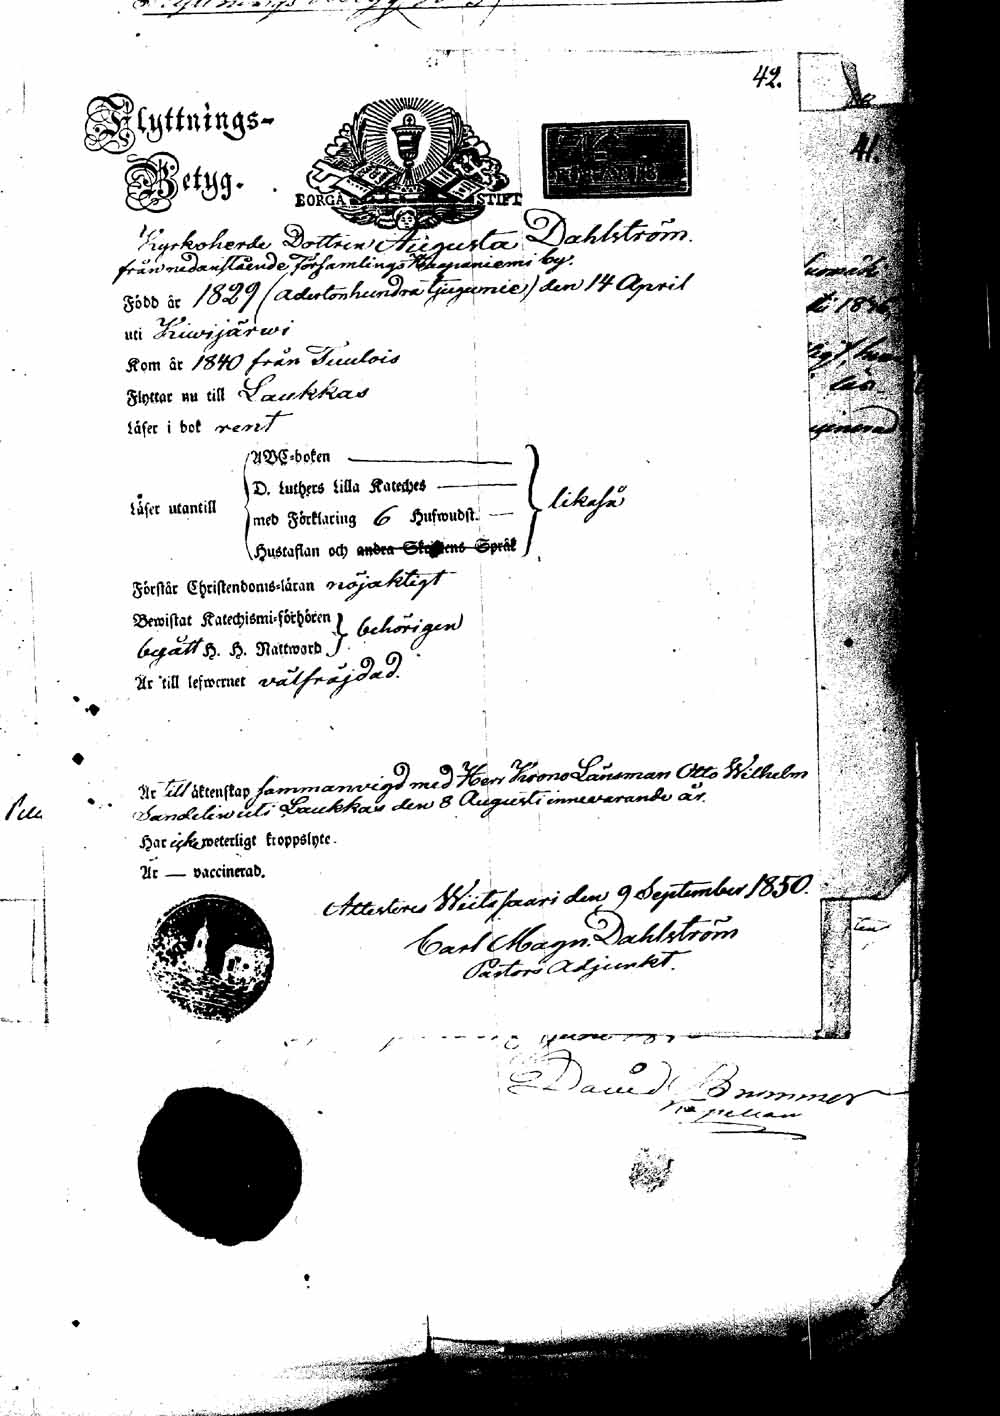 42.
41.
Flyttnings-
Betyg.
BORGÅ STIFT
Kyrkoherde Dottren Augusta Dahlström.
från nedanstående Församlings Haapaniemi by.
Född år 1829 (Adertonhundra tjugunie) den 14 April
uti Kiwijärwi
Kom år 1840 från Tuulois
Flyttar nu till Laukkas
Läser i bok rent
Läser utantill
ABC-boken
D. Luthers Lilla Kateches
med Förklaring 6 Hufwudst.
Hustaflan och andra Skriftens Språk
likaså
Förstår Christendoms-läran nöjaktigt
Bewistat Katechismi-förhören
begått H. H. Nattward.
behörigen
Är till lefwernet välfräjdad.
Är till äktenskap sammanvigd med Herr Krono Länsman Otto Wilhelm
Sandelin uti Laukkas den 8 Augusti innevarande år.
Har icke weterligt kroppslyte.
Är — vaccinerad.
Attesteres Wiitasaari den 9 September 1850.
Carl Magn. Dahlström
Pastors Adjunkt.
David Brummer
Kapellan